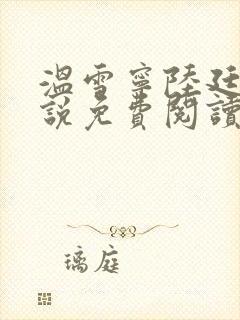 溫雪寧陸廷
說免費閱讀
璃庭